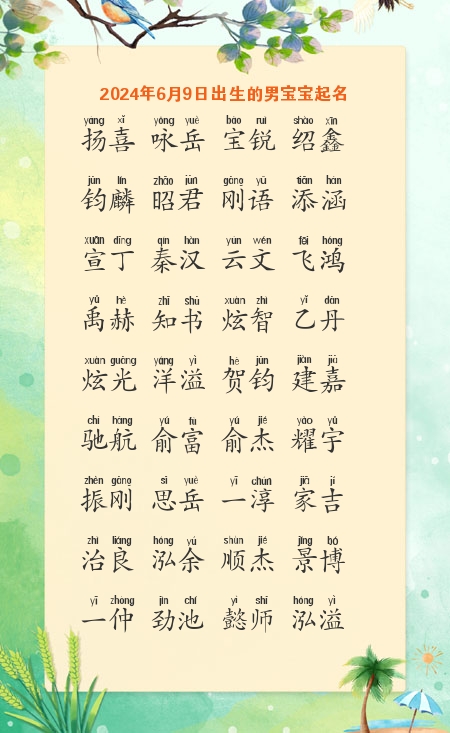 2024年6月9日出生的男宝宝起名
yáng xǐ yǒng yuè bǎo ruì shào xīn
扬喜 咏岳 宝锐 绍鑫
jūn lín zhāo jūn gāng yǔ tiān hán
钧麟 昭君 刚语 添涵
xuān dīng qín hàn yún wén fēi hóng
宣丁 秦汉 云文 飞鸿
yǔ hè zhī shū xuàn zhì yǐ dān
禹赫 知书 炫智 乙丹
xuàn guāng yáng yì hè jūn jiàn jiā
炫光 洋溢 贺钧 建嘉
chí háng yú fù yú jié yào yǔ
驰航 俞富 俞杰 耀宇
zhèn gāng sī yuè yī chún jiā jí
振刚 思岳 一淳 家吉
zhì liáng hóng yú shùn jié jǐng bó
治良 泓余 顺杰 景博
yī zhòng jìn chí yì shī hóng yì
一仲 劲池 懿师 泓溢